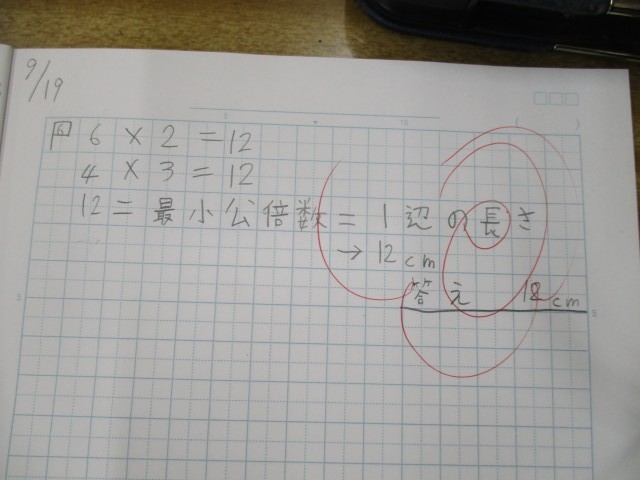 9/19
6 6 × 2 = 12
4 × 3 = 12
12 = 最小公倍数 = 1辺の長さ
→ 12cm
答え 12cm